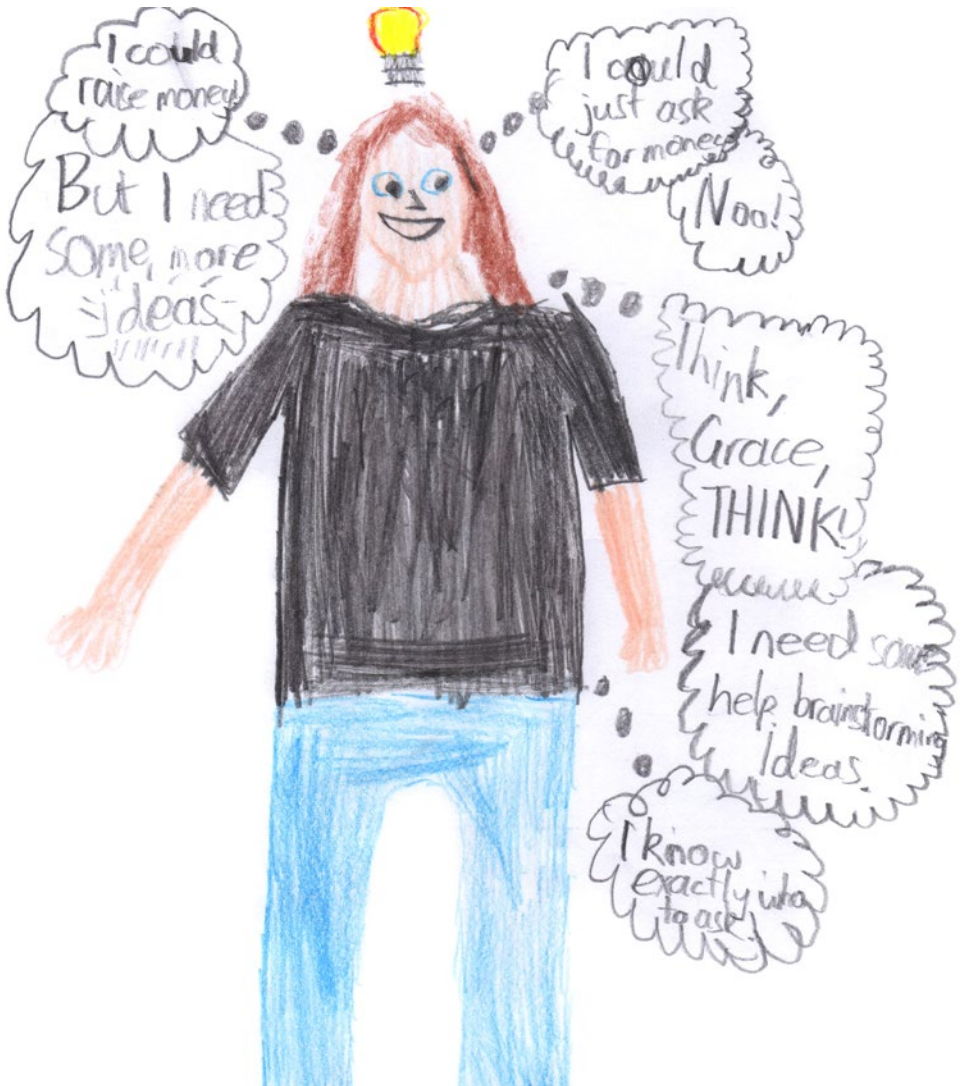 I could
raise money!
But I need
some, more
ideas
I could
just ask
for money
Noo!
Think,
Grace,
THINK!
I need some
help brainstorming
Ideas.
I know
exactly who
to ask!